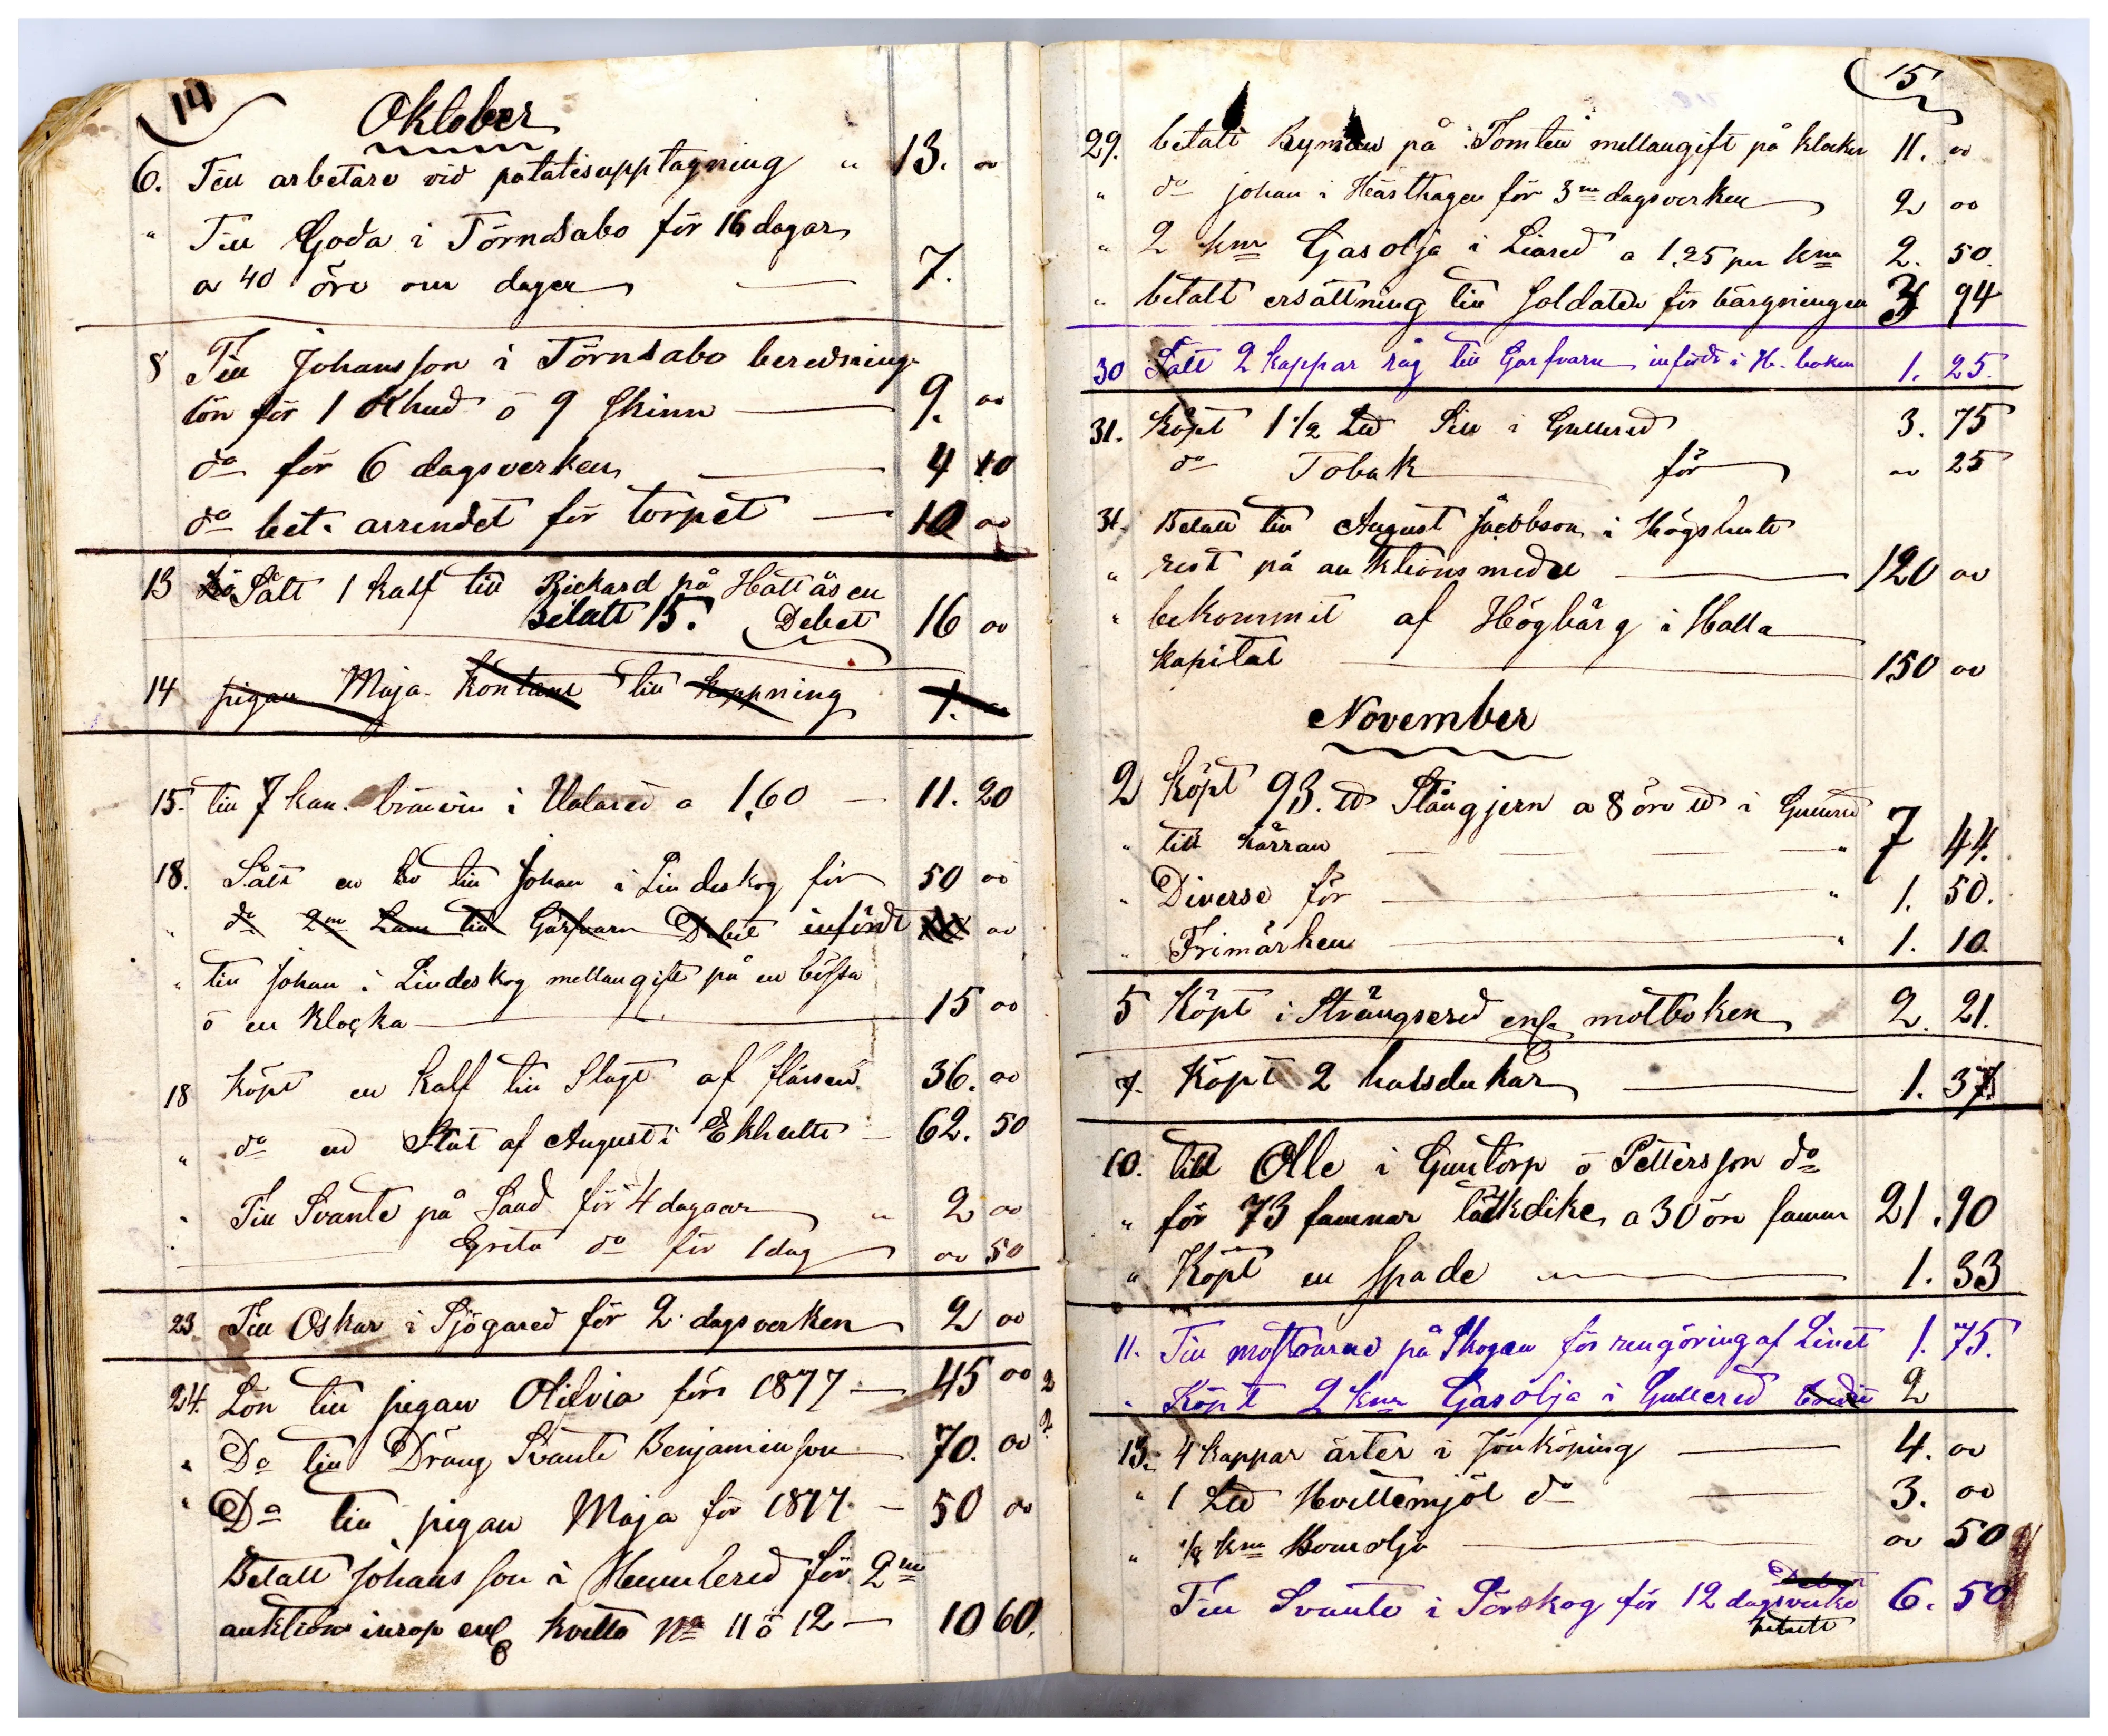 14
Oktober
6. Till arbetare vid potatisupptagning " 13. 00
" Till Goda i Törnåsabo för 16 dagar
a 40 öre om dagen 7.
8 Till Johansson i Törnåsabo berednings
lön för 1 Khud o 9 skinn 9. 00
do för 6 dagsverken 4 10
do bet. arrendet för torpet 10 00
13 Sålt 1 kalf till Rickard på Hattåsen
Betalt 15. Debet 16 00
14 pigan Maja Kontant till koppning 1.
15. till 7 kan. bränvin i Ulared a 1,60 11. 20
18. Sålt en ko till Johan i Lindeskog för 50 00
" do 2ne Lam till Garfvarn Debit infördt 00
" till Johan i Lindeskog mellangift på en bössa
o en klocka 15 00
18 Köpt en kalf till Slagt af 36. 00
" do en Stut af August i Ekhulte 62. 50
" Till Svante på Sand för 4 dagaar " 2 00
Greta do för 1 dag 00 50
23 Till Oskar i Sjögared för 2 dagsverken 2 00
24. Lön till pigan Olilvia för 1877 45 00 2
" Do till Dräng Svante Benjaminson 70. 00 2
" Do till pigan Maja för 1877 50 00
Betalt Johansson i Humlered för 2ne
auktions inrop enl kvitto No 11 o 12 10 60.
15
29. betalt Ryman på Tomten mellangift på klockor 11. 00
" do Johan i Hästhagen för 3ne dagsverken 2 00
" 2 knr Gasolja i Liared a 1,25 per knr 2. 50.
" betalt ersättning till Soldaten för bärgningen 3 94
30 Sålt 2 kappar råg till Garfvarn infördt i H. boken 1. 25.
31. Köpt 1 1/2 L℔ Sill i Gullered 3. 75
do Tobak för 00 25
31. Betalt till August Jacobson i Högshult
" rest på auktionsmedel 120 00
" bekommit af Högbärg i Halla
kapital 150 00
November
2 Köpt 93 ℔ Stångjern a 8 öre ℔ i Gullered
" till kärran " 7 44.
" Diverse för " 1. 50.
" Frimärken " 1. 10.
5 Köpt i Strängsered enl. motboken 2. 21.
7. Köpt 2 halsdukar 1. 37.
10. till Olle i Guntorp o Pettersson do
" för 73 famnar täckdike a 30 öre famn 21. 90
" Köpt en Spade 1. 33
11. Till på Skogen för rengöring af Linet 1. 75.
" Köpt 2 knr Gasolja i Gullered 2
13. 4 kappar ärter i Jönköping 4. 00
" 1 L℔ Hvettemjöl do 3. 00
" 1/8 knr Bomolja 00 50
Debet
Till Svante i Sörskog för 12 dagsverke 6. 50
betalt